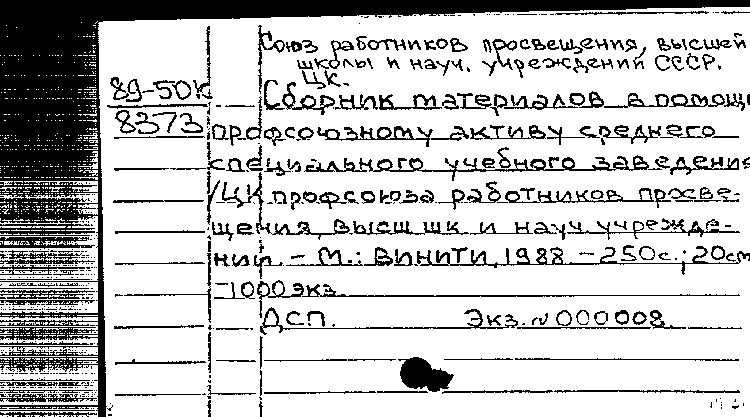 Союз работников просвещения, высшей
школы и науч. учреждений СССР.
ЦК.
89-50К
8373
Сборник материалов в помощь
профсоюзному активу среднего
специального учебного заведения
/ЦК профсоюза работников просве-
щения, высш шк и науч учрежде-
ний. - М.: ВИНИТИ, 1988 - 250с.; 20см
-1000 экз.
ДСП. Экз. № 000008.